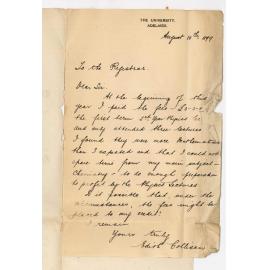 THE UNIVERSITY,
ADELAIDE.
August 18th, 1899
To the Registrar.
Dear Sir
At the beginning of this
year I paid the fee
the first term 2nd Year Physics
and only attended three lectures
I found they were more mathematical
than I expected and that I could not
spare time from my main subject -
Chemistry - to do enough preparation
to profit by the Physics Lectures.
Is it possible that, under the
circumstances, the fee might be
placed to my credit?
I remain
Yours truly
Edith